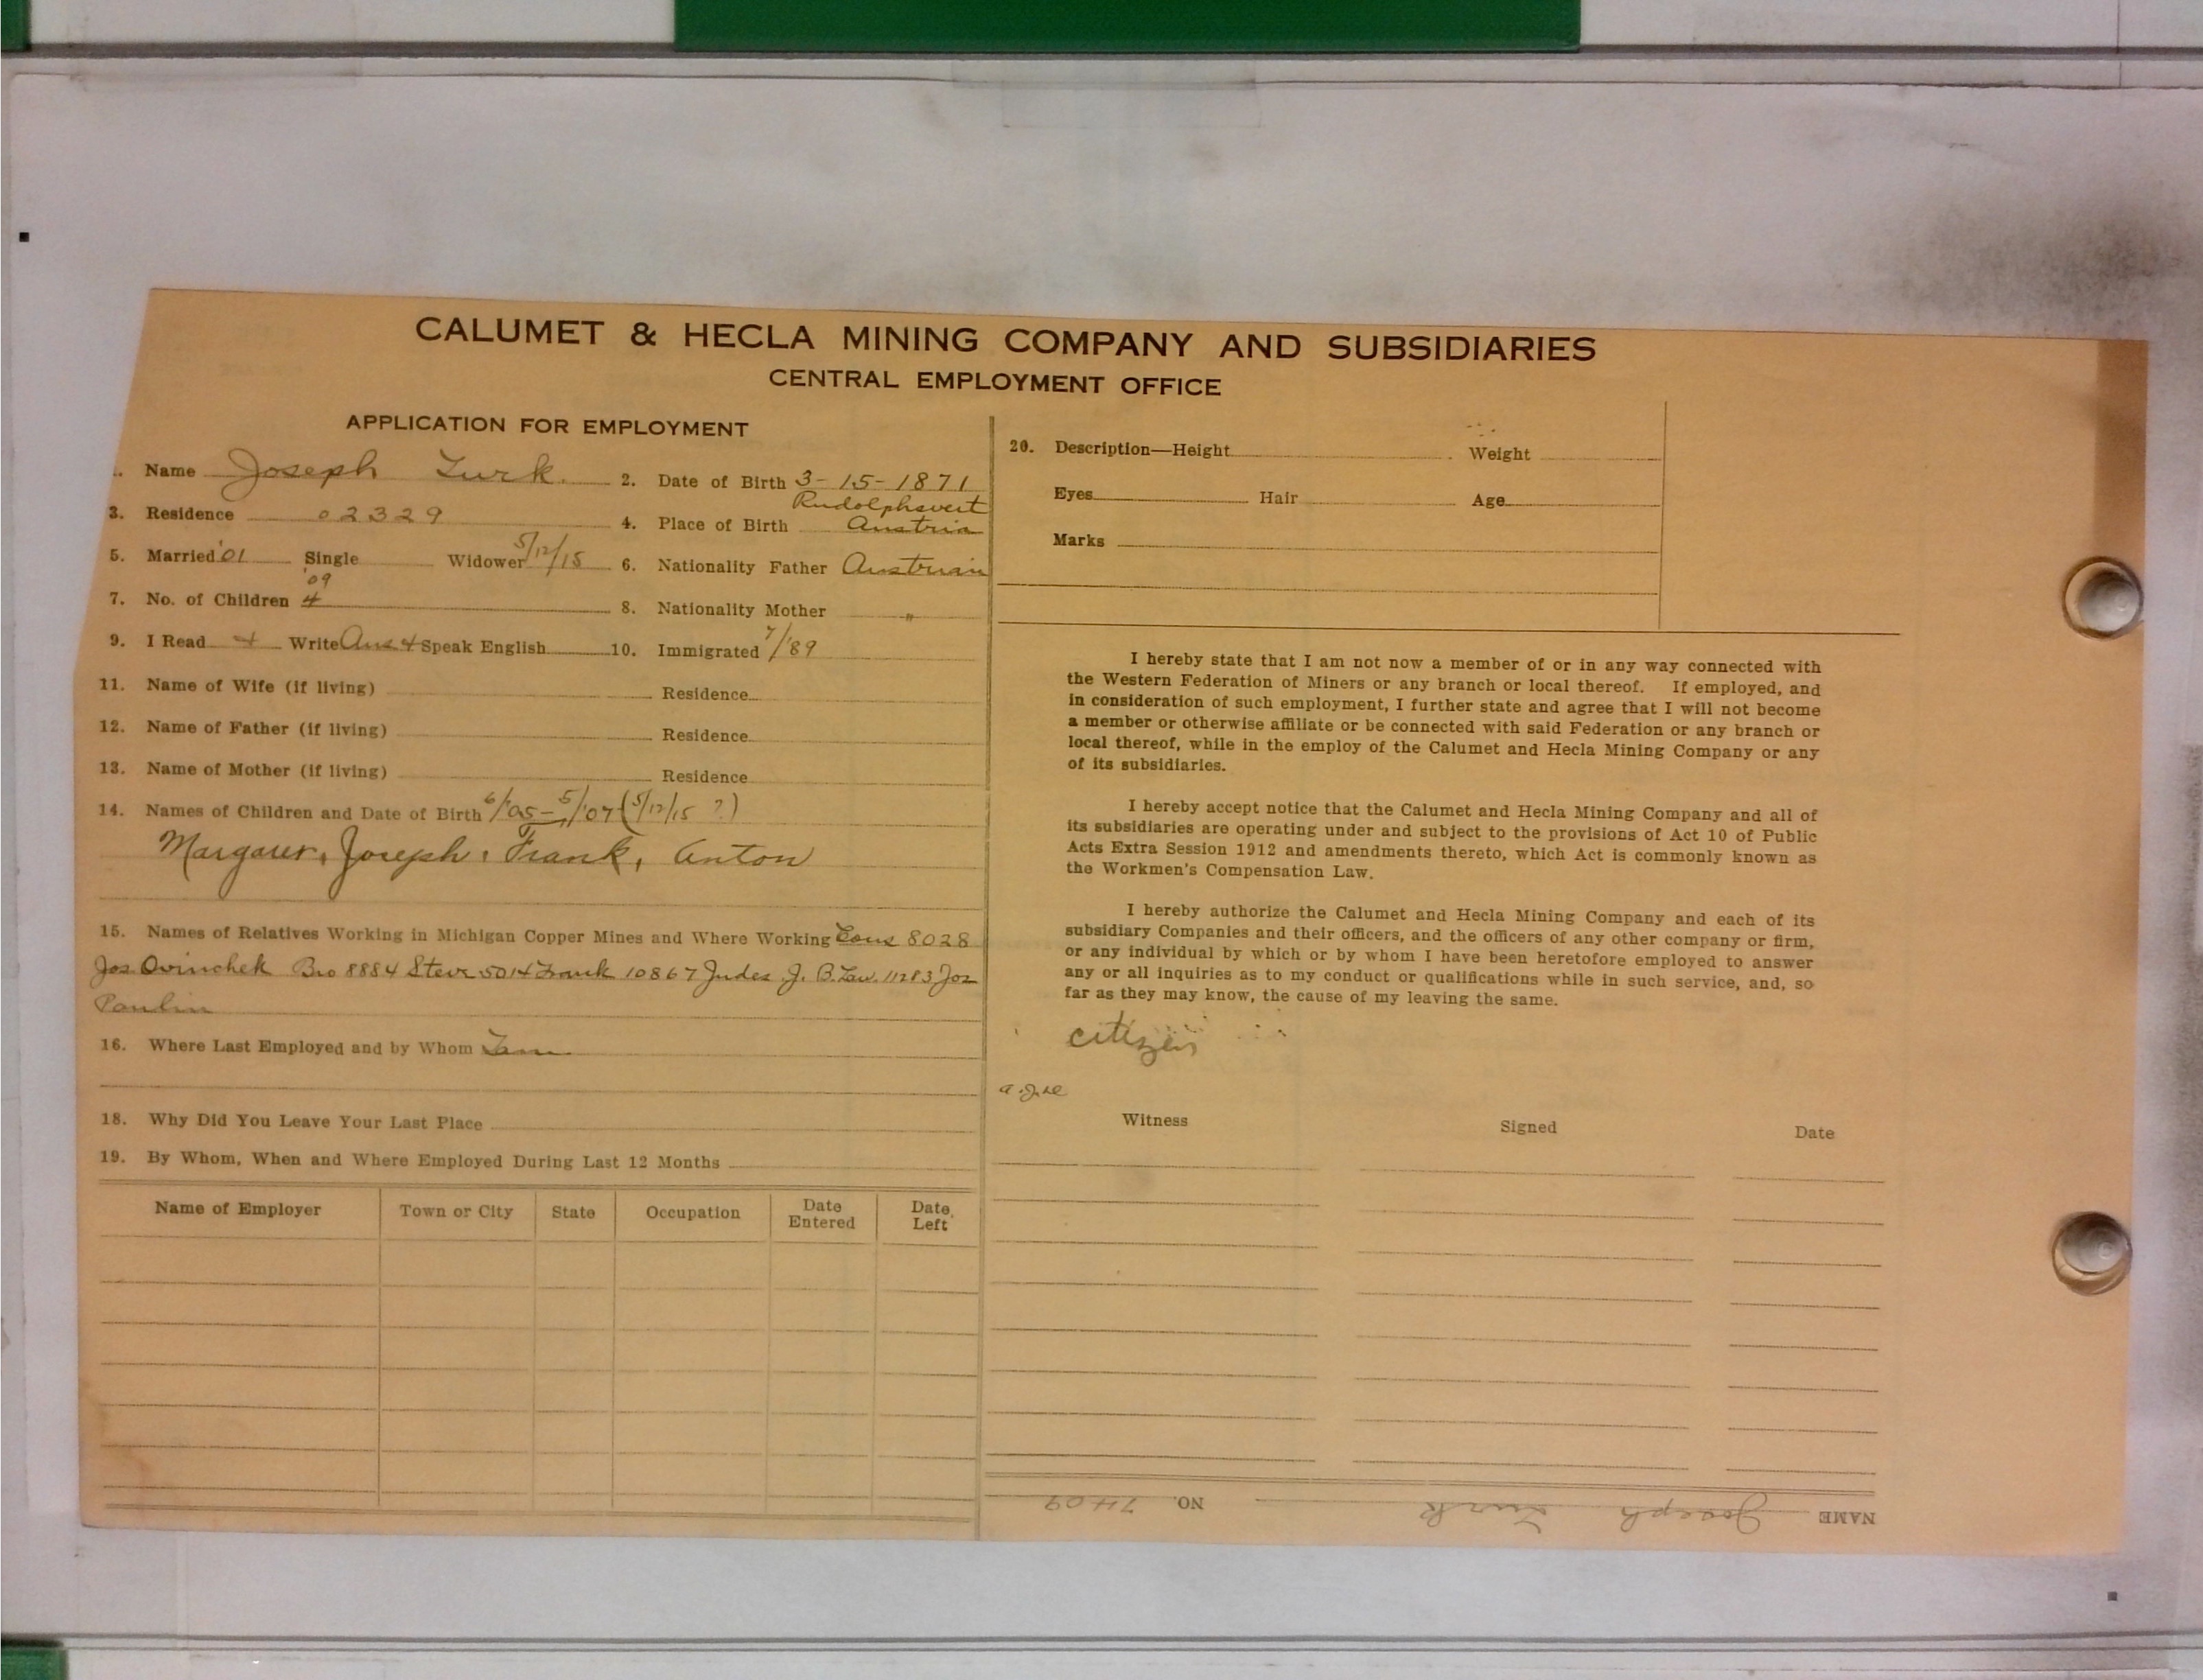 CALUMET & HECLA MINING COMPANY AND SUBSIDIARIES
CENTRAL EMPLOYMENT OFFICE
APPLICATION FOR EMPLOYMENT
. Name Joseph Turk. 2. Date of Birth 3-15-1871
Rudolphswert
3. Residence 02329 4. Place of Birth Austria
5. Married '01 Single Widower 5/12/15 6. Nationality Father Austrian
'09
7. No. of Children 4 8. Nationality Mother "
9. I Read + Write Aus + Speak English 10. Immigrated 7/'89
11. Name of Wife (if living) Residence
12. Name of Father (if living) Residence
13. Name of Mother (if living) Residence
14. Names of Children and Date of Birth 6/'05-5/'07 (5/12/15 ?)
Margaret, Joseph, Frank, Anton
15. Names of Relatives Working in Michigan Copper Mines and Where Working Cous 8028
Jos. Ovinchek Bro 8884 Steve 5014 Frank 10867 Judes J. B. Law. 11283 Jos
Paulin
16. Where Last Employed and by Whom
18. Why Did You Leave Your Last Place
19. By Whom, When and Where Employed During Last 12 Months
Name of Employer Town or City State Occupation Date Entered Date Left
20. Description—Height Weight
Eyes Hair Age
Marks
I hereby state that I am not now a member of or in any way connected with
the Western Federation of Miners or any branch or local thereof. If employed, and
in consideration of such employment, I further state and agree that I will not become
a member or otherwise affiliate or be connected with said Federation or any branch or
local thereof, while in the employ of the Calumet and Hecla Mining Company or any
of its subsidiaries.
I hereby accept notice that the Calumet and Hecla Mining Company and all of
its subsidiaries are operating under and subject to the provisions of Act 10 of Public
Acts Extra Session 1912 and amendments thereto, which Act is commonly known as
the Workmen's Compensation Law.
I hereby authorize the Calumet and Hecla Mining Company and each of its
subsidiary Companies and their officers, and the officers of any other company or firm,
or any individual by which or by whom I have been heretofore employed to answer
any or all inquiries as to my conduct or qualifications while in such service, and, so
far as they may know, the cause of my leaving the same.
citizen
Witness Signed Date
NAME Joseph Turk NO. 7409